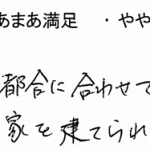 あまあ満足 ・やや
都合に合わせて
家を建てられ